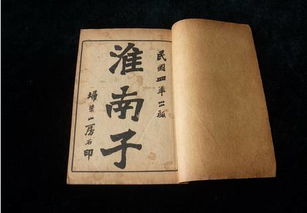 民國四年二版
淮南子
埽葉山房石印